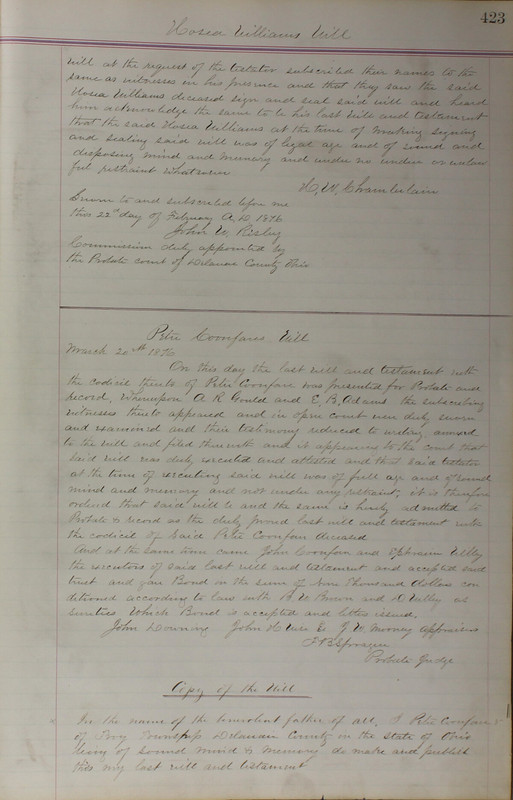 423
Hosia Williams Will
will at the request of the testator subscribed their names to the
same as witnesses in his presence and that they saw the said
Hosia Williams deceased sign and seal said will and heard
him acknowledge the same to be his last will and testament
that the said Hosia Williams at the time of making signing
and sealing said will was of legal age and of sound and
disposing mind and memory and under no undue or unlaw
ful restraint whatsoever
H. W. Chamberlain
Sworn to and subscribed before me
this 22nd day of February A.D. 1876
John W. Risley
Commission duly appointed by
the Probate court of Delaware County Ohio
Peter Coonfare Will
March 20th 1876
On this day the last will and testament with
the codicil thereto of Peter Coonfare was presented for Probate and
record, Whereupon A R Gould and E. B. Adams the subscribing
witnesses thereto appeared and in open court were duly sworn
and examined and their testimony reduced to writing annexed
to the will and filed therewith and it appearing to the court that
said will was duly executed and attested and that said testator
at the time of executing said will was of full age and of sound
mind and memory and not under any restraint, it is therefore
ordered that said will be and the same is hereby admitted to
Probate & record as the duly proved last will and testament with
the codicil of said Peter Coonfare deceased
And at the same time came John Coonfare and Ephraim
the executors of said last will and testament and accepted said
trust and gave Bond in the sum of Nine Thousand dollars con
ditioned according to law with Brown and as
sureties Which Bond is accepted and letters issued.
John Downing John G W Mooney appraisers
Sprague
Probate Judge
Copy of the Will
In the name of the benevolent father of all, I Peter Coonfare
of Troy Township Delaware County in the state of Ohio
being of sound mind & memory do make and publish
this my last will and testament